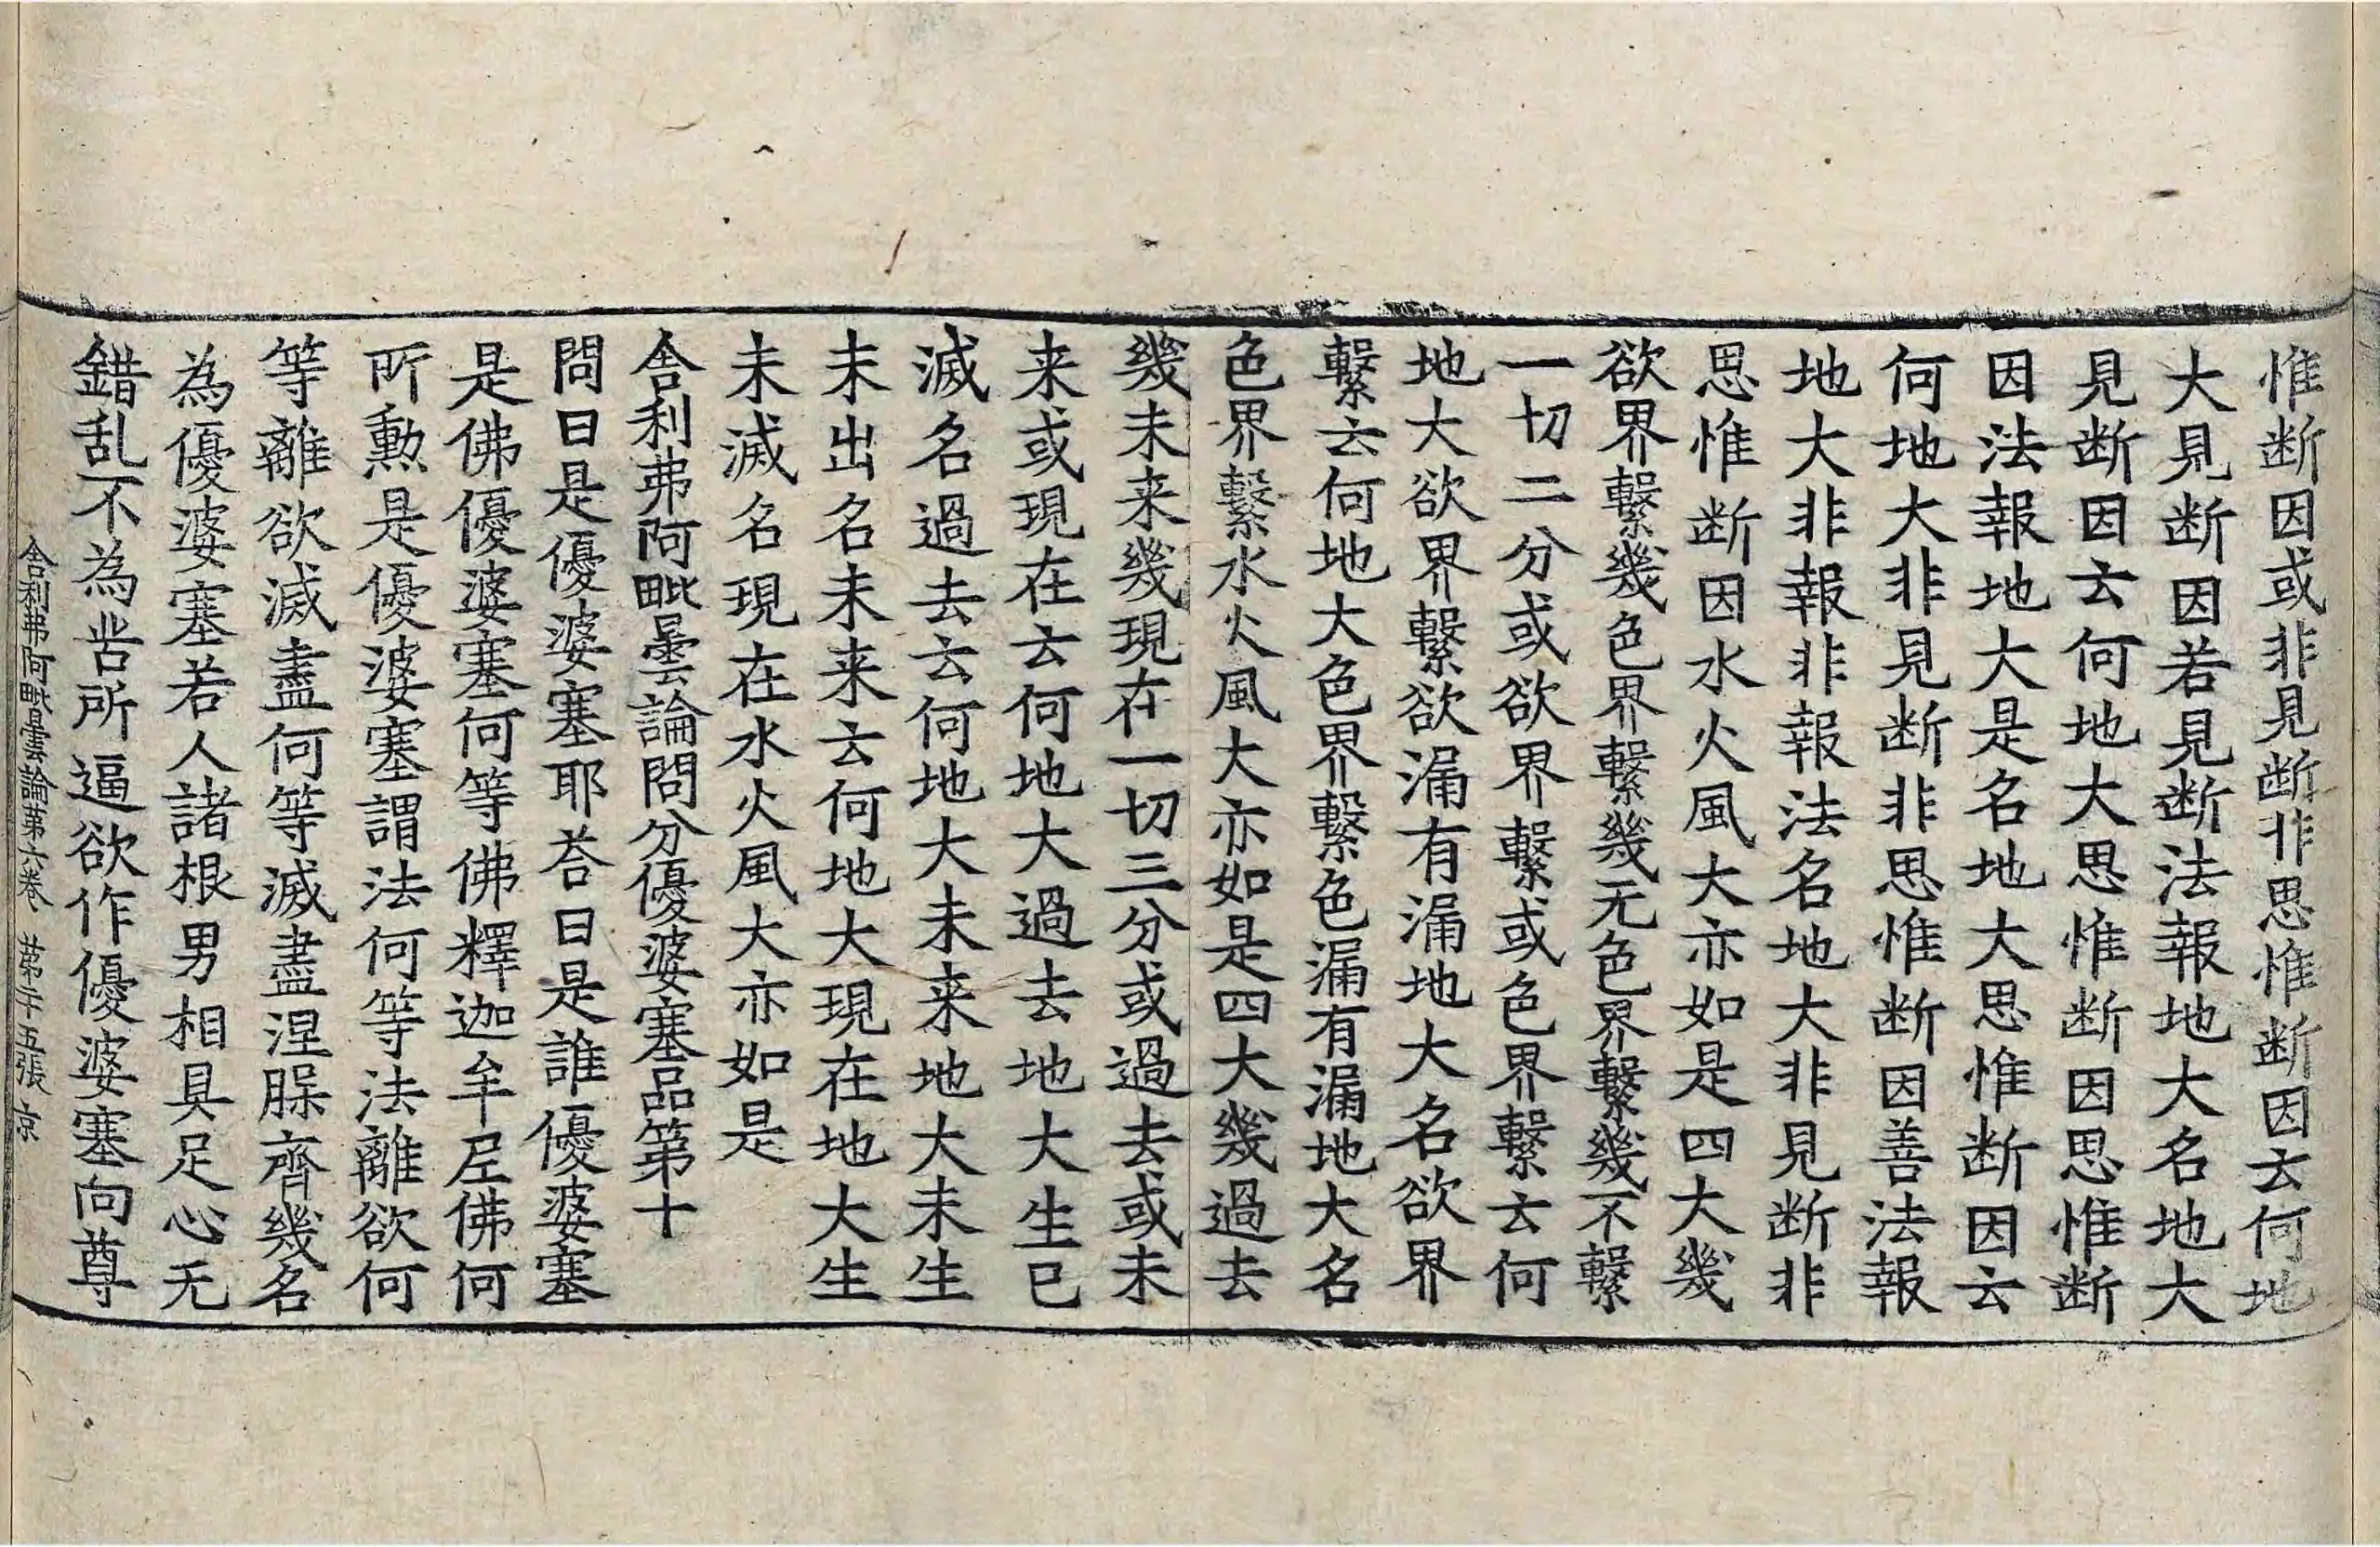 惟断因或非見断非思惟断因云何地
大見断因若見断法報地大名地大
見断因云何地大思惟断因思惟断
因法報地大是名地大思惟断因云
何地大非見断非思惟断因善法報
地大非報非報法名地大非見断非
思惟断因水火風大亦如是四大幾
欲界繫幾色界繫幾无色界繫幾不繫
一切二分或欲界繫或色界繫云何
地大欲界繫欲漏有漏地大名欲界
繫云何地大色界繫色漏有漏地大名
色界繫水火風大亦如是四大幾過去
幾未来幾現在一切三分或過去或未
来或現在云何地大過去地大生已
滅名過去云何地大未来地大未生
未出名未来云何地大現在地大生
未滅名現在水火風大亦如是
舍利弗阿毗曇論問分優婆塞品第十
問曰是優婆塞耶荅曰是誰優婆塞
是佛優婆塞何等佛釋迦牟尼佛何
所勲是優婆塞謂法何等法離欲何
等離欲滅盡何等滅盡涅脲齊幾名
為優婆塞若人諸根男相具足心无
錯乱不為苦所逼欲作優婆塞向尊
舍利弗阿毗曇論第六卷 第廿五張 京